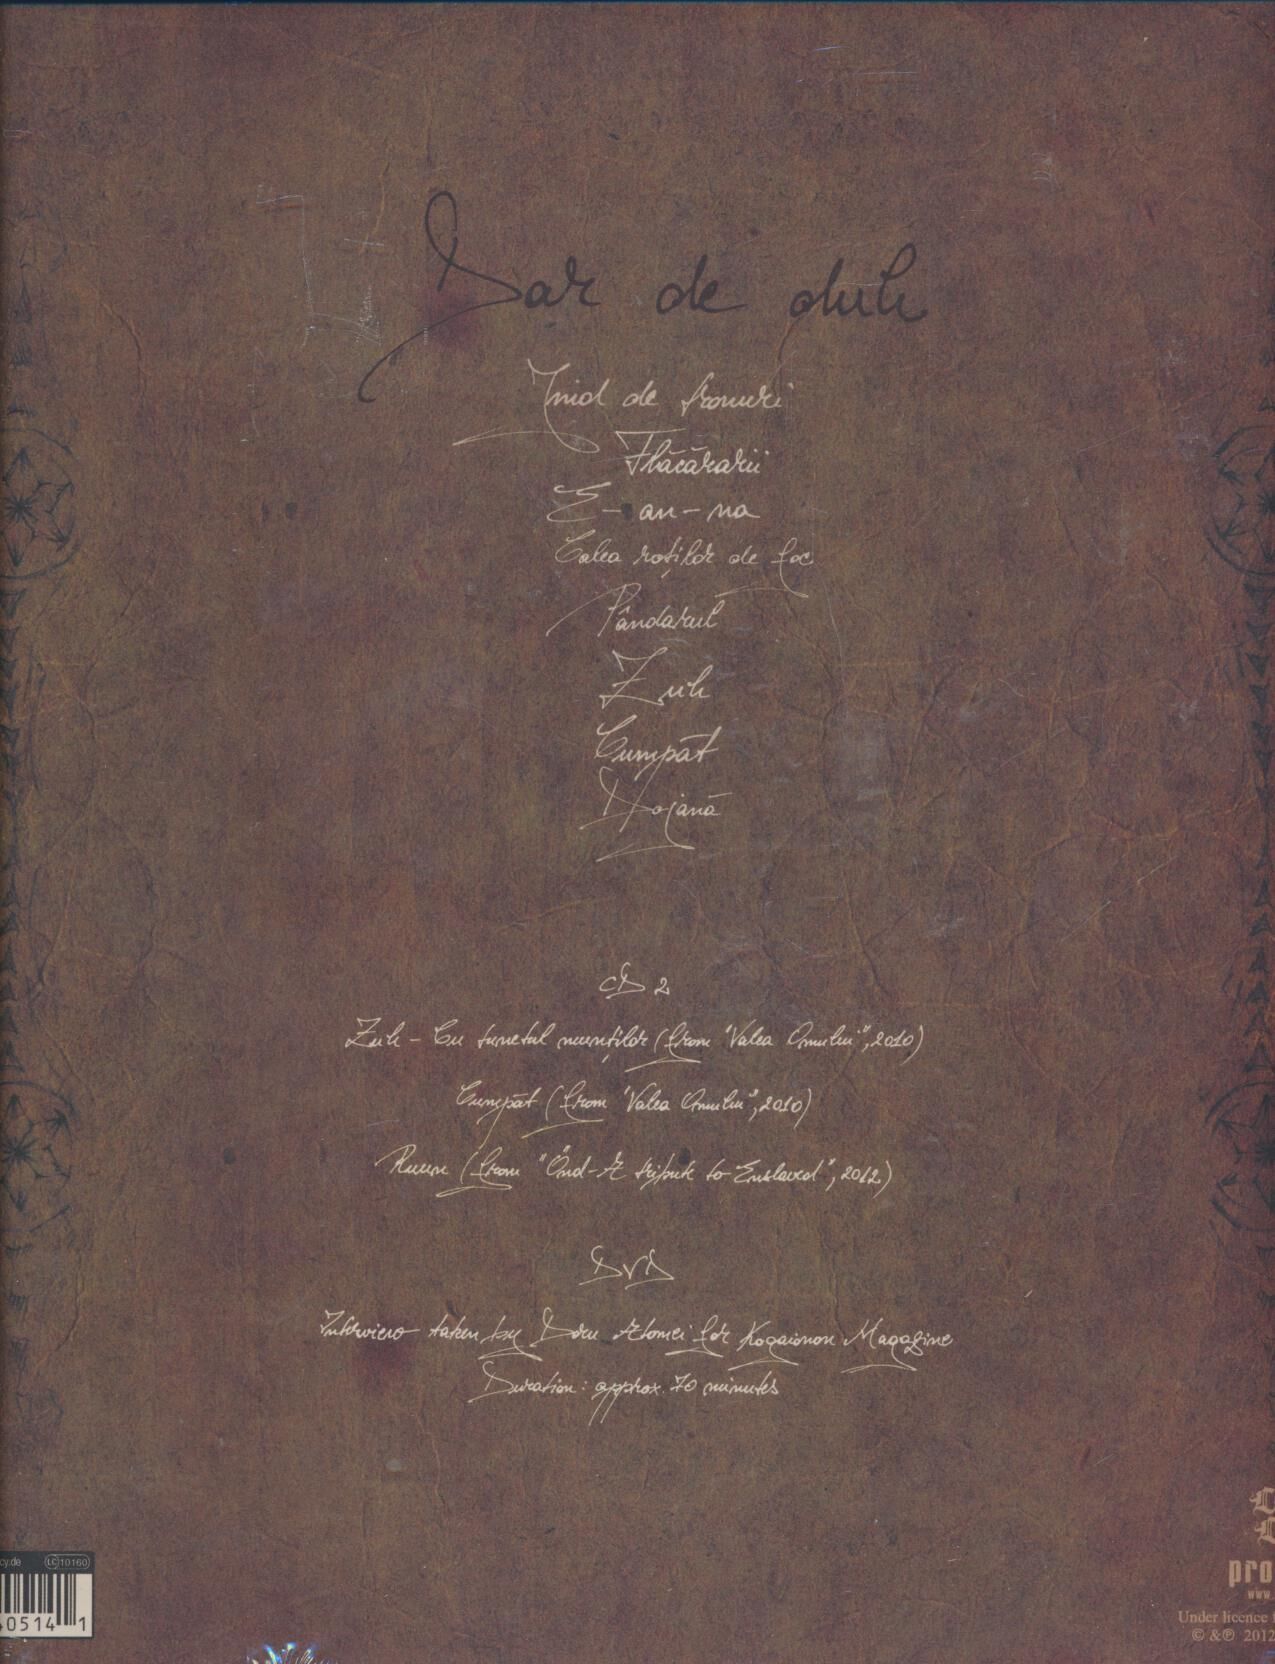 Dar de duh
Iniid de fromuri
Flăcărarii
E-an-na
Calea roților de foc
Pândarul
Zuh
Cumpăt
Dojană
CD 2
Zuh - Cu tunetul munților (from "Valea Omului", 2010)
Cumpăt (from "Valea Omului", 2010)
Ruun (from "Önd - A tribute to Enslaved", 2012)
DVD
Interview taken by Doru Atomei for Kogaionon Magazine
Duration: approx. 70 minutes
cy.de LC 10160
40514 1
pro
www.
Under licence
© & ℗ 2012